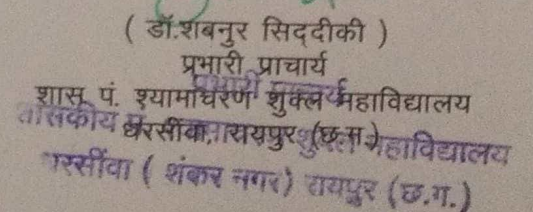 ( डॉ.शबनुर सिद्दीकी )
प्रभारी प्राचार्य
शास. पं. श्यामाचरण शुक्ल महाविद्यालय
धरसींवा, रायपुर (छ.ग.)
महाविद्यालय
धरसींवा ( शंकर नगर) रायपुर (छ.ग.)